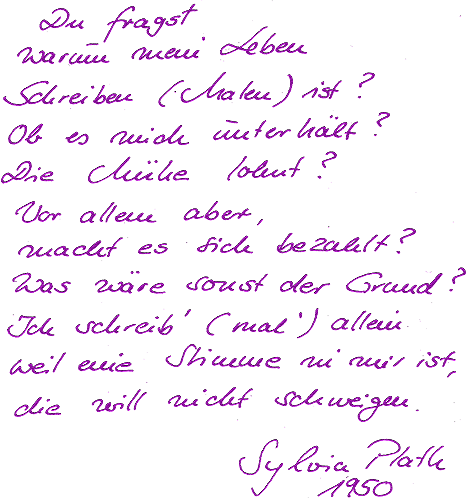 Du fragst
warum mein Leben
Schreiben (Malen) ist?
Ob es mich unterhält?
Die Mühe lohnt?
Vor allem aber,
macht es sich bezahlt?
Was wäre sonst der Grund?
Ich schreib' (mal') allein
weil eine Stimme in mir ist,
die will nicht schweigen.
Sylvia Plath
1950